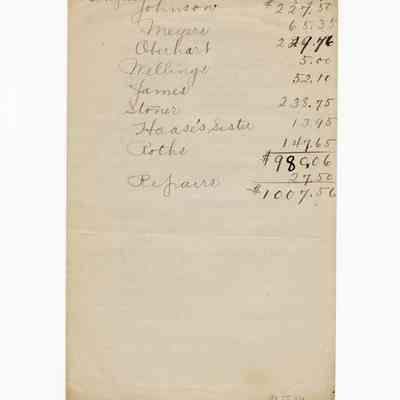 Johnson $227.50
Meyers 65.35
Oberhart 229.76
Wellings 5.00
James 52.10
Stoner 238.75
Haase's Sister 13.95
Roths 147.65
$980.06
Repairs 27.50
$1007.56